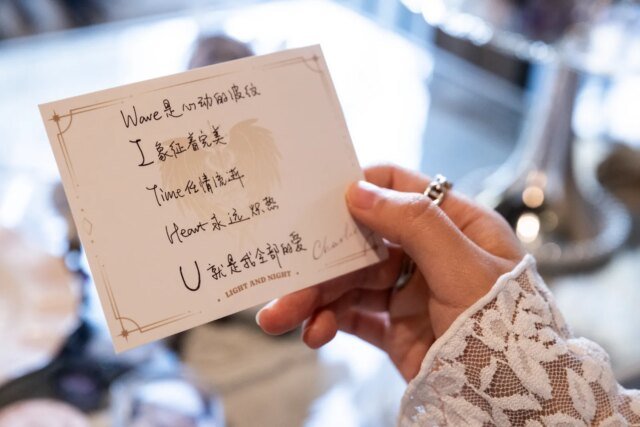 Wave是心动的波纹
I 象征着完美
Time任情流转
Heart永远炽热
U 就是我全部的爱
LIGHT AND NIGHT